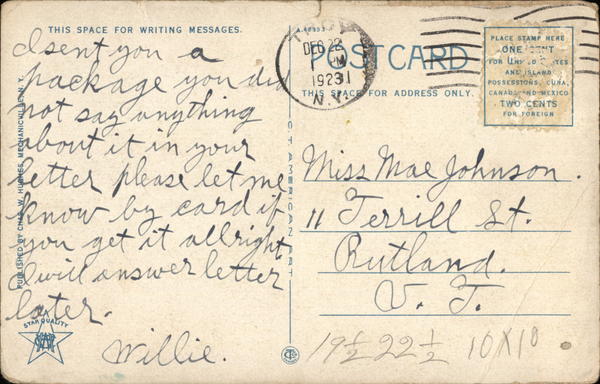 THIS SPACE FOR WRITING MESSAGES.
I sent you a
package you did
not say anything
about it in your
letter please let me
know by card if
you get it allright
I will answer letter
later.
Willie.
PUBLISHED BY CHAS. W. HUGHES, MECHANICVILLE, N. Y.
STAR QUALITY
DEC 22
PM
1923
N.Y.
POST CARD
THIS SPACE FOR ADDRESS ONLY.
PLACE STAMP HERE
ONE CENT
FOR UNITED STATES
AND ISLAND
POSSESSIONS, CUBA,
CANADA AND MEXICO
TWO CENTS
FOR FOREIGN
Miss Mae Johnson.
11 Terrill St.
Rutland.
V. T.
19½ 22½ 10X10